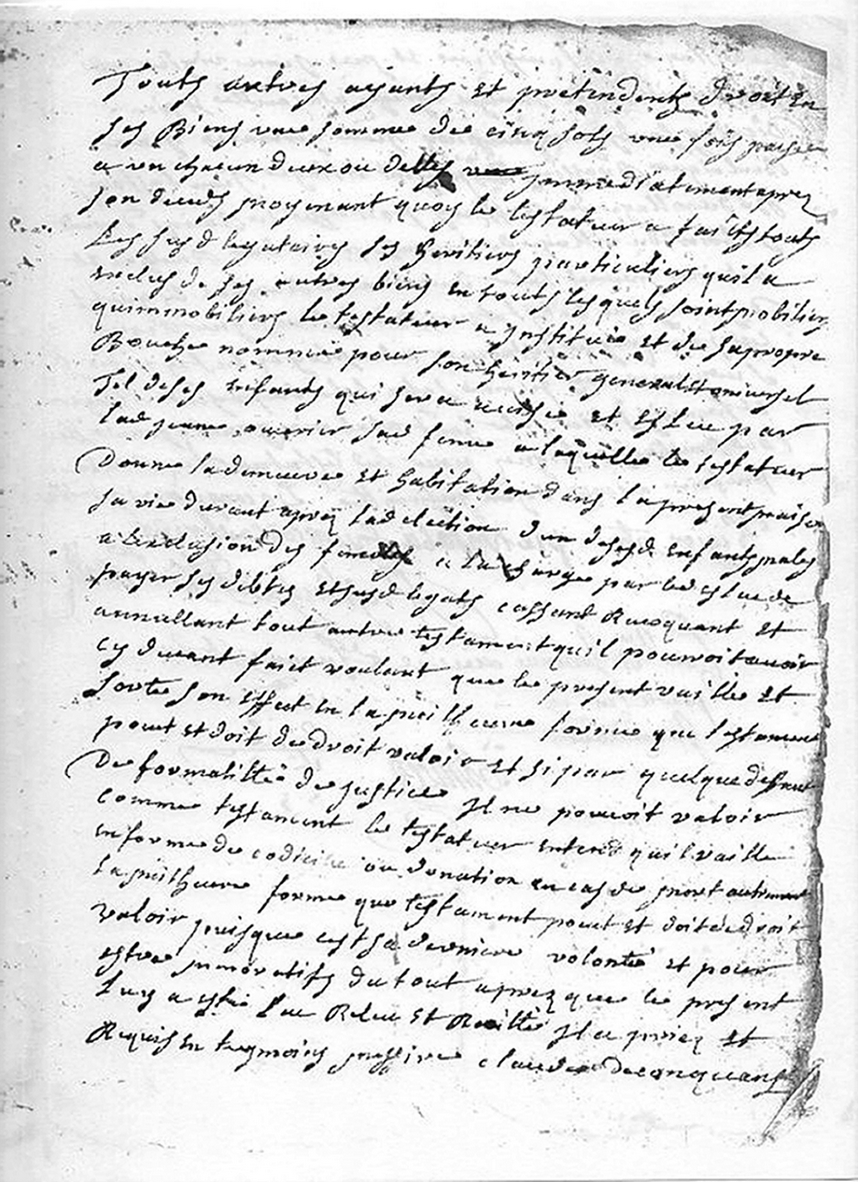 Touts autres ayants et prétendents droict en
ses Biens une somme de cinq sols une fois payée
a un chacun deux ou delles
son deceds moyenant quoy le testateur a faits touts
Les susd legataires ses heritiers particuliers quil a
exclus de ses autres biens en touts lesquels soint mobiliers
quimmobiliers le testateur a Institué et de sa propre
Bouche nommé pour son héritier general et universel
Tel de ses enfants qui sera et esleu par
lad jeanne sad feme a laquelle le testateur
Donne la demeure et habitation dans la present maison
sa vie durant aprez lad election dun desd enfants males
a lexclusion des femelles a la charge par led eslu de
payer ses debtes et susd legats cassant Revoquant et
annullant tout autre testament quil pouroit avoir
cy devant faict voulant que le present vaille et
sorte son effect en la meilleure forme que testament
peut et doit de droit valoir et si par quelque deffaut
De formalitté de justice Il ne pouvoit valoir
comme testament le testateur entend quil vaille
en forme de codicile ou donation en cas de mort autrement
La meilheure forme que testament peut et doit de droit
valoir puisque cest sa derniere volonté et pour
estre du tout aprez que le present
Luy a esté Leu Releu et Recitté Il a priez et
Requis en tesmoins messire claude